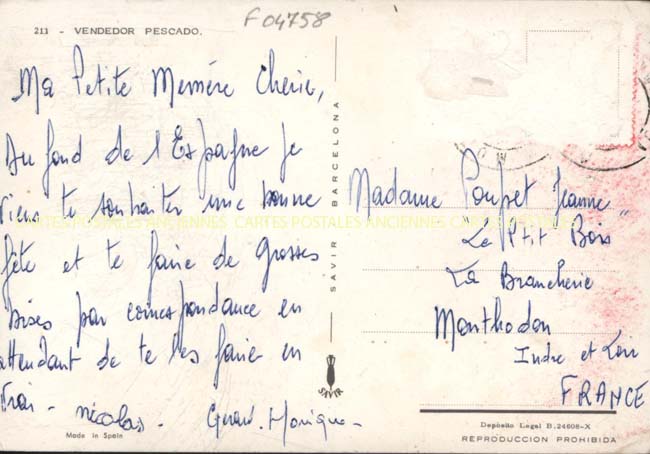 211 - VENDEDOR PESCADO.
F 04758
Ma Petite Mémère Chérie,
Au fond de l'Espagne je
viens te souhaiter une bonne
fête et te faire de grosses
bises par correspondance en
attendant de te les faire en
vrai - nicolas - Gérard. Monique -
Made in Spain
SAVIR BARCELONA
SAVIR
Madame Poupet Jeanne
"Le P'tit Bois"
La Brancherie
Monthodon
Indre et Loire
FRANCE
Depósito Legal B.24608-X
REPRODUCCION PROHIBIDA
CARTES POSTALES ANCIENNES CARTES POSTALES ANCIENNES